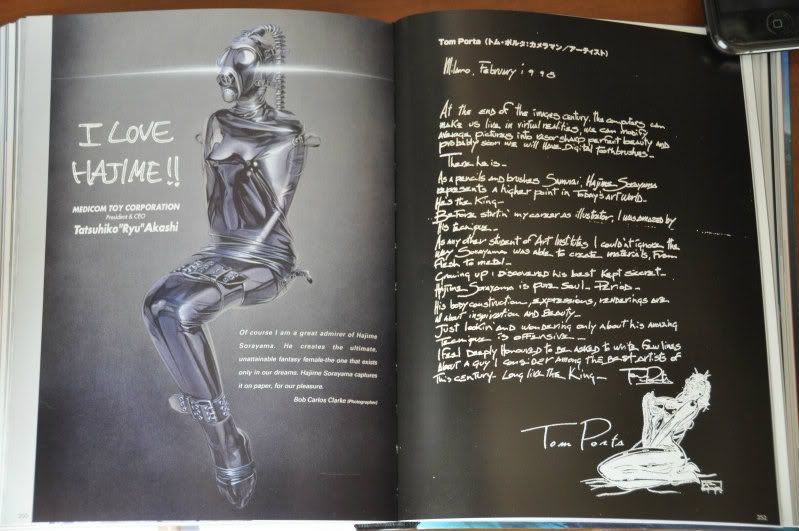 I LOVE
HAJIME!!
MEDICOM TOY CORPORATION
President & CEO
Tatsuhiko"Ryu"Akashi
Of course I am a great admirer of Hajime
Sorayama. He creates the ultimate,
unattainable fantasy female-the one that exists
only in our dreams. Hajime Sorayama captures
it on paper, for our pleasure.
Bob Carlos Clarke (Photographer)
Tom Porta (トム・ポルタ:カメラマン/アーティスト)
Milano, February 1998
At the end of the images century, the computers can
make us live in virtual realities, we can modify
average pictures into razor sharp perfect beauty and
probably soon we will have Digital toothbrushes_
There he is_
As a pencils and brushes Samurai, Hajime Sorayama
represents a higher point in today's art world_
He's the King_
Before startin' my career as illustrator, I was amazed by
his tecnique_
As any other student of Art Institutes I couldn't ignore the
way Sorayama was able to create materials, from
flesh to metal_
Growing up I discovered his best kept secret_
Hajime Sorayama is pure soul_ Period_
His body construction, expressions, renderings are
all about inspiration and beauty_
Just lookin' and wondering only about his amazing
tecnique is offensive_
I feel deeply honoured to be asked to write few lines
about a guy I consider among the best artists of
this century_ Long live the King_
Tom Porta
352